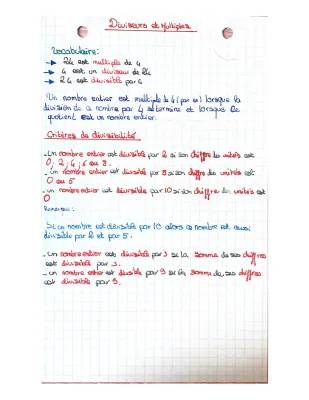 Diviseurs et Multiples
Vocabulaire:
→ 24 est multiple de 4
→ 4 est un diviseur de 24
→ 24 est divisible par 4
Un nombre entier est multiple de 4 (par ex) lorsque la
division de ce nombre par 4 se termine et lorsque le
quotient est un nombre entier.
Critères de divisibilité
- un nombre entier est divisible par 2 si son chiffre des unités est
0; 2; 4; 6 ou 8.
- un nombre entier est divisible par 5 si son chiffre des unités est
0 ou 5
- un nombre entier est divisible par 10 si son chiffre des unités est
0
Remarque:
Si un nombre est divisible par 10 alors ce nombre est aussi
divisible par 2 et par 5.
- un nombre entier est divisible par 3 si la somme de ses chiffres
est divisible par 3.
- un nombre entier est divisible par 9 si la somme de ses chiffres
est divisible par 9.